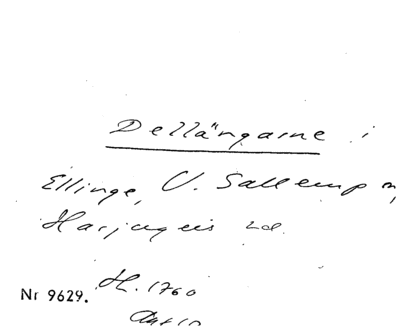 Dellängarne i
Ellinge, V. Sallerup m,
Harjagers hd.
H. 1760
Nr 9629.